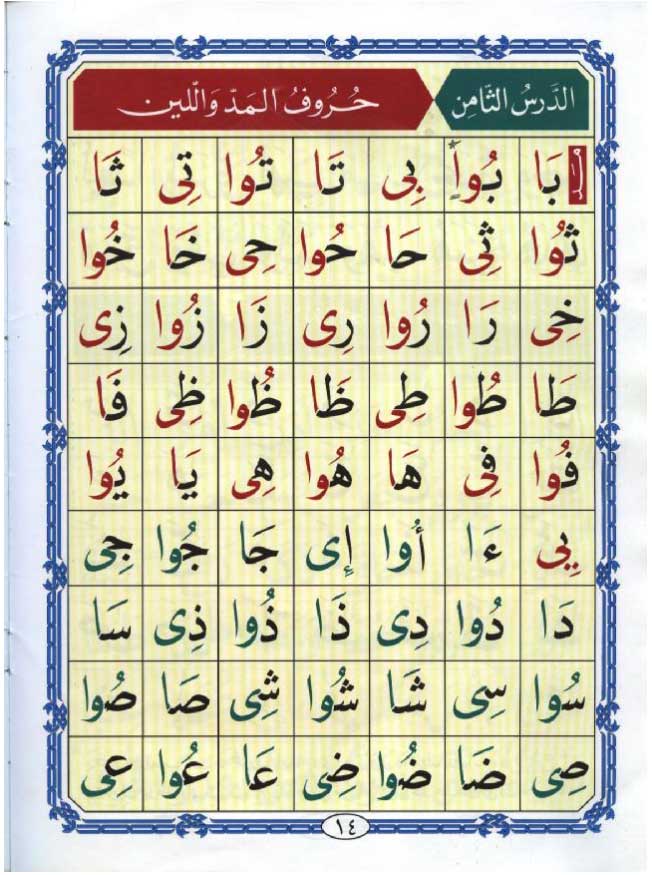 الدَّرسُ الثَّامِن حُرُوفُ المَدّ وَاللّين
مَد بَا بُواْ* بِى تَا تُوا تِى ثَا
ثُوا ثِى حَا حُوا حِى خَا خُوا
خِى رَا رُوا رِى زَا زُوا زِى
طَا طُوا طِى ظَا ظُوا ظِى فَا
فُوا فِى هَا هُوا هِى يَا يُوا
يِى ءَا أُوا إِى جَا جُوا جِى
دَا دُوا دِى ذَا ذُوا ذِى سَا
سُوا سِى شَا شُوا شِى صَا صُوا
صِى ضَا ضُوا ضِى عَا عُوا عِى
١٤